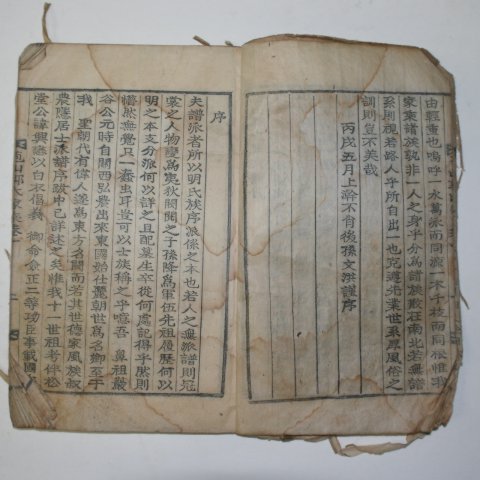 由輕重也嗚呼一水萬派而同源一木千枝而同根惟我
家衆諸族孰非一人之身半分爲諸族散在南北若無譜
系則視若路人乎所自出一也克遵先業世系厚風俗之
訓則豈不美哉
丙戌五月上澣不肖後孫文洪謹序
序
夫譜派者所以明氏族序派系之本也若人之無派譜則冠
裳之人物變爲夷狄閥閱之子孫降爲軍伍先祖履歷何以
明之本支分派何以詳之且配墓生卒從何處記得乎然則
懵然無覺只一蠢虫耳豈可以士族稱之乎噫吾 鼻祖嚴
谷公元時自關西點農出來東國始仕麗朝世爲名卿至于
我 聖朝代有偉人遂爲東方名閥而若其世德家風族叔
農隱居士派譜序跋中已詳述之矣惟我十一世祖考伴松
堂公諱興 以白衣倡義 御命僉正二等功臣事載國